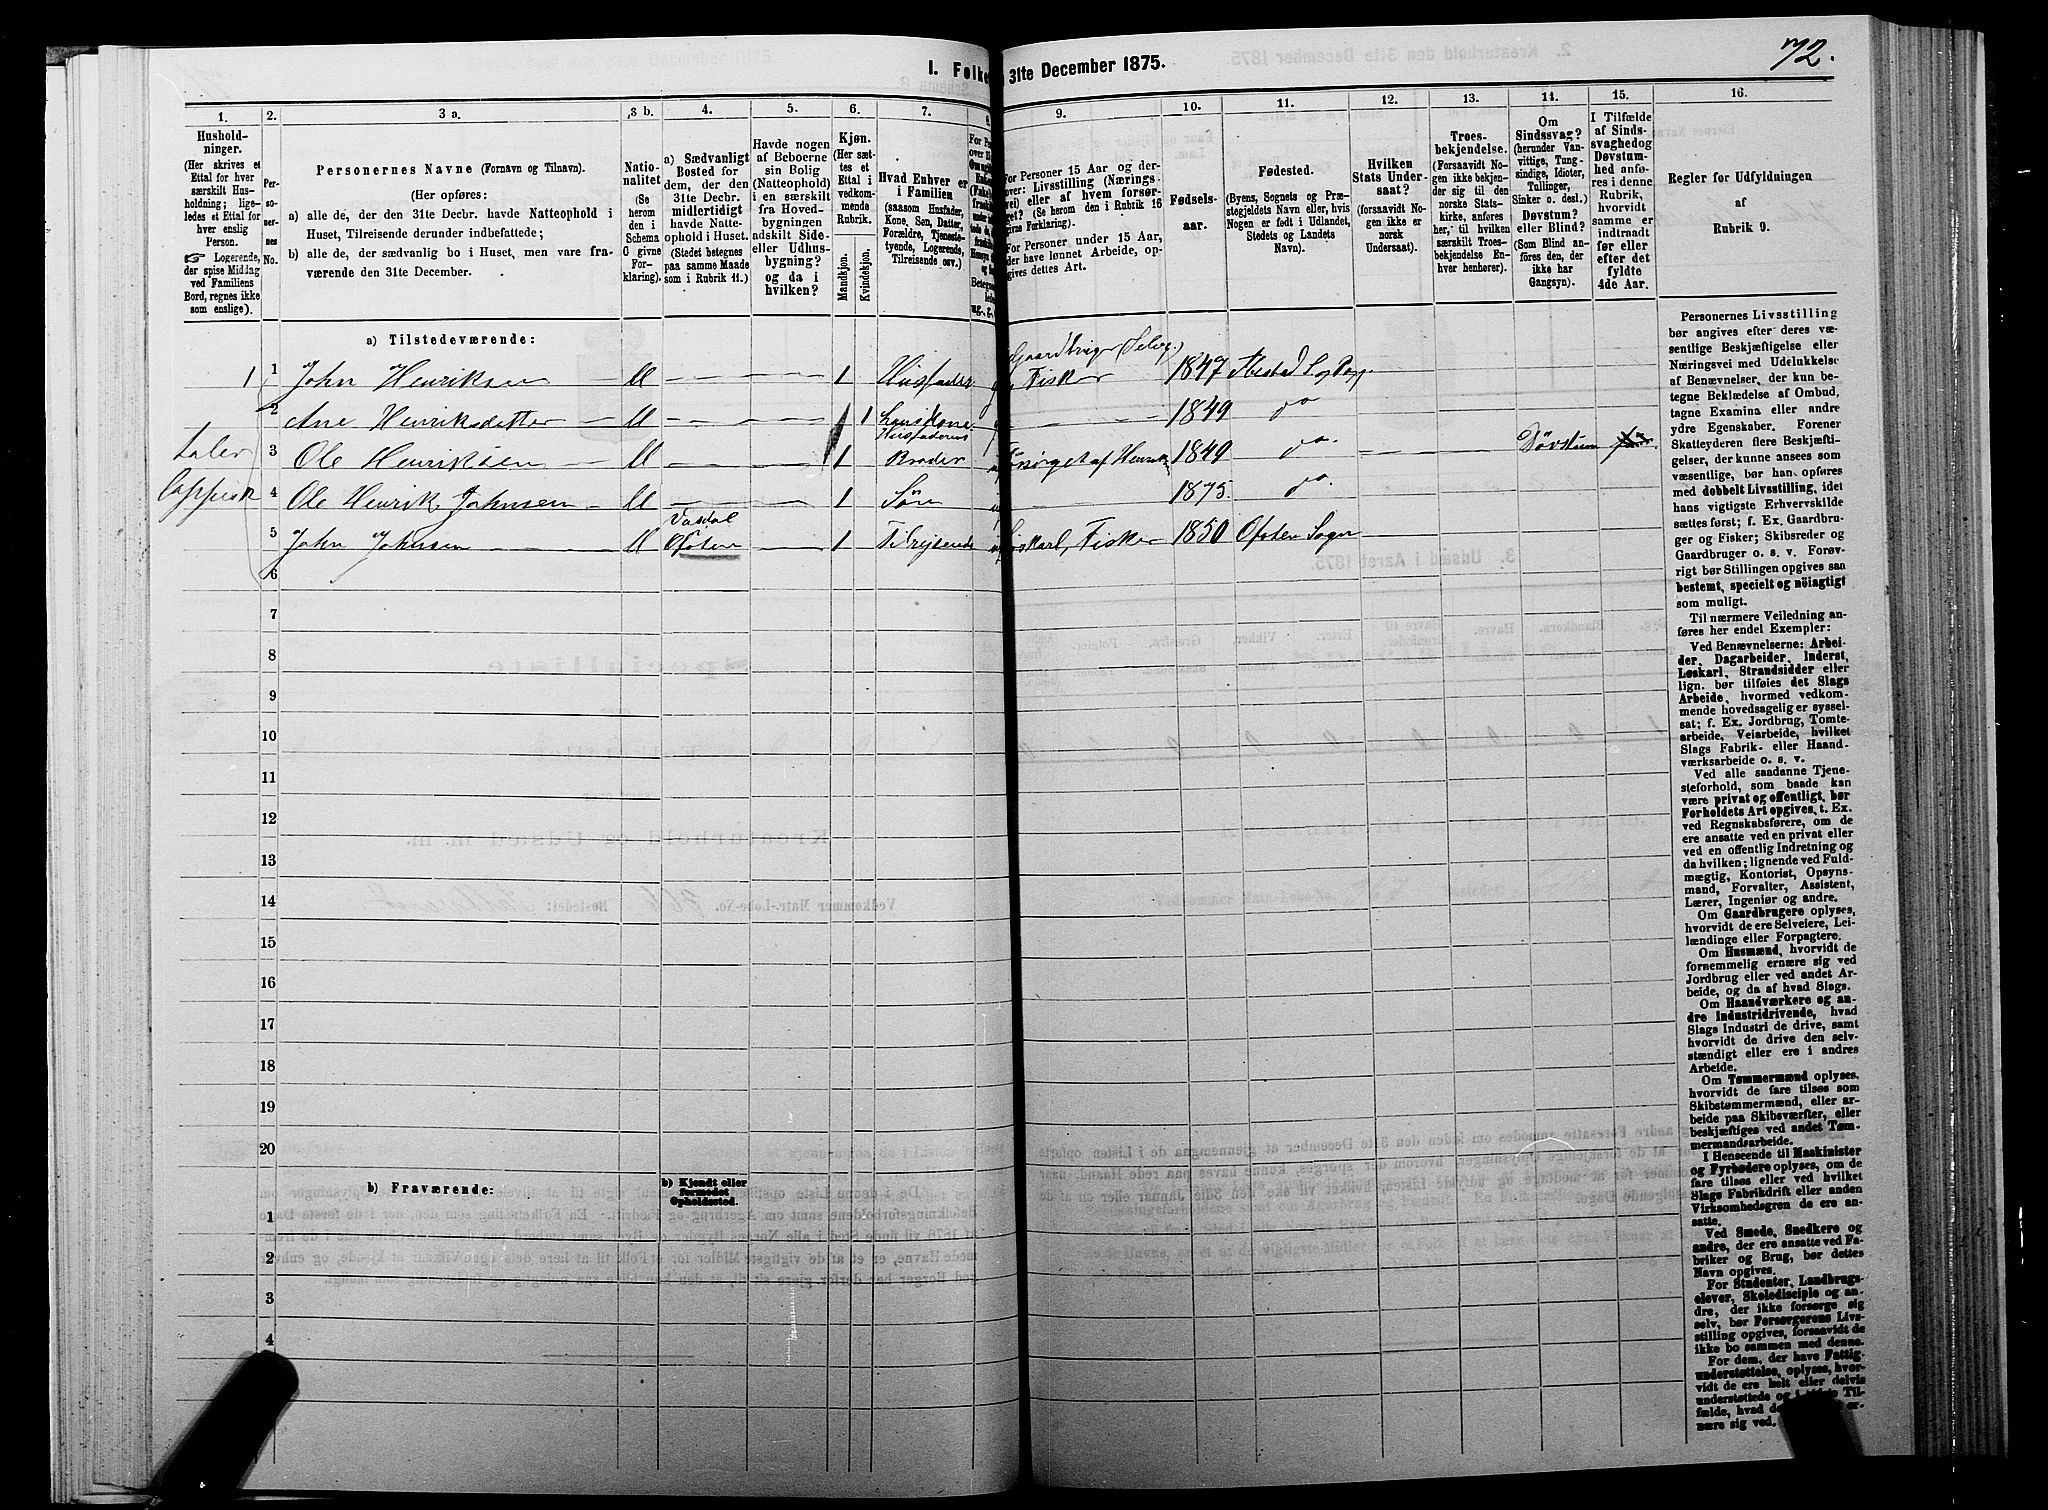 72.
I. Folke
31te December 1875.
1.
2.
3 a.
3 b.
4.
5.
6.
7.
8.
9.
10.
11.
12.
13.
14.
15.
16.
Hushold-
ninger.
(Her skrives et
Ettal for hver
særskilt Hus-
holdning; lige-
ledes et Ettal for
hver enslig
Person.
☞ Logerende,
der spise Middag
ved Familiens
Bord, regnes ikke
som enslige).
Per-
so-
ner-
nes
No.
Personernes Navne (Fornavn og Tilnavn).
(Her opføres:
a) alle de, der den 31te Decbr. havde Natteophold i
Huset, Tilreisende derunder indbefattede;
b) alle de, der sædvanlig bo i Huset, men vare fra-
værende den 31te December.
Natio-
nalitet
(Se
herom
den i
Schema
C givne
For-
klaring).
a) Sædvanligt
Bosted for
dem, der den
31te Decbr.
midlertidigt
havde Natte-
ophold i Huset.
(Stedet betegnes
paa samme Maade
som i Rubrik 11.)
Havde nogen
af Beboerne
sin Bolig
(Natteophold)
i en særskilt
fra Hoved-
bygningen
adskilt Side-
eller Udhus-
bygning?
og da i
hvilken?
Kjøn.
(Her sæt-
tes et
Ettal i
vedkom-
mende
Rubrik.
Mandkjøn.
Kvindekjøn.
Hvad Enhver er
i Familien
(saasom Husfader,
Kone, Søn, Datter,
Forældre, Tjeneste-
tyende, Logerende,
Tilreisende osv.)
For Personer 15 Aar og der-
over: Livsstilling (Nærings-
vei) eller af hvem forsør-
get? (Se herom den i Rubrik 16
givne Forklaring).
For Personer under 15 Aar,
der have lønnet Arbeide, op-
gives dettes Art.
Fødsels-
aar.
Fødested.
(Byens, Sognets og Præ-
stegjeldets Navn eller, hvis
Nogen er født i Udlandet,
Stedets og Landets
Navn).
Hvilken
Stats Under-
saat?
(forsaavidt Nogen ikke er
norsk
Undersaat).
Troes-
bekjendelse.
(Forsaavidt No-
gen ikke bekjen-
der sig til den
norske Stats-
kirke, anføres
her, til hvilken
særskilt Troes-
bekjendelse En-
hver henhører).
Om
Sindssvag?
(herunder Van-
vittige, Tung-
sindige, Idioter,
Tullinger,
Sinker o. desl.)
Døvstum?
eller Blind?
(Som Blind an-
føres den, der
ikke har
Gangsyn).
I Tilfælde
af Sinds-
svaghed og
Døvstum-
hed anfø-
res i denne
Rubrik,
hvorvidt
samme er
indtraadt
før eller
efter det
fyldte
4de Aar.
Regler for Udfyldningen
af
Rubrik 9.
a) Tilstedeværende:
1 1 John Henriksen M 1 Husfader Gaardbruger (Selvej.) og Fisker 1847
2 Ane Henriksdatter M 1 Huuskone 1849 do
taler lappisk
3 Ole Henriksen M 1 Husfaderens Broder Forsørget af 1849 do Døvstum
4 Ole Henrik Johnsen M 1 Søn 1875 do
5 John Johnsen M Ofoten 1 Tilrejsende Løskarl, Fisker 1850 Ofoten Sogn
6
7
8
9
10
11
12
13
14
15
16
17
18
19
20
b) Fraværende:
b) Kjendt eller
formodet
Opholdssted.
1
2
3
4
Personernes Livsstilling
bør angives efter deres væ-
sentlige Beskjæftigelse eller
Næringsvei med Udelukkelse
af Benævnelser, der kun be-
tegne Beklædelse af Ombud,
tagne Examina eller andre
ydre Egenskaber. Forener
Skatteyderen flere Beskjæfti-
gelser, der kunne ansees som
væsentlige, bør han opføres
med dobbelt Livsstilling, idet
hans vigtigste Erhvervskilde
sættes først; f. Ex. Gaardbru-
ger og Fisker; Skibsreder og
Gaardbruger o. s. v. Forøv-
rigt bør Stillingen opgives saa
bestemt, specielt og nöiagtigt
som muligt.
Til nærmere Veiledning an-
føres her endel Exempler:
Ved Benævnelserne: Arbei-
der, Dagarbeider, Inderst,
Løskarl, Strandsidder eller
lign. bør tilføies det Slags
Arbeide, hvormed vedkom-
mende hovedsagelig er syssel-
sat; f. Ex. Jordbrug, Tomte-
arbeide, Veiarbeide, hvilket
Slags Fabrik- eller Haand-
værksarbeide o. s. v.
Ved alle saadanne Tjene-
steforhold, som baade kan
være privat og offentligt, bør
Forholdets Art opgives, t. Ex.
ved Regnskabsførere, om de
ere ansatte ved en privat eller
ved en offentlig Indretning og
da hvilken; lignende ved Fuld-
mægtig, Kontorist, Opsyns-
mand, Forvalter, Assistent,
Lærer, Ingeniør og andre.
Om Gaardbrugere oplyses,
hvorvidt de ere Selveiere, Lei-
lændinge eller Forpagtere.
Om Husmænd, hvorvidt de
fornemmelig ernære sig ved
Jordbrug eller ved andet Ar-
beide, og da af hvad Slags.
Om Haandværkere og an-
dre Industridrivende, hvad
Slags Industri de drive, samt
hvorvidt de drive den selv-
stændigt eller ere i andres
Arbeide.
Om Tømmermænd oplyses,
hvorvidt de fare tilsøs som
Skibstømmermænd, eller ar-
beide paa Skibsværfter, eller
beskjæftiges ved andet Tøm-
mermandsarbeide.
I Henseende til Maskinister
og Fyrbødere oplyses, om de
fare tilsøs eller ved hvilket
Slags Fabrikdrift eller anden
Virksomhedsgren de ere an-
satte.
Ved Smede, Snedkere og
andre, der ere ansatte ved Fa-
briker og Brug, bør dettes
Navn opgives.
For Studenter, Landbrugs-
elever, Skoledisciple og an-
dre, der ikke forsørge sig
selv, bør Forsørgerens Livs-
stilling opgives, forsaavidt de
ikke bo sammen med denne.
For dem, der have Fattig-
understøttelse, oplyses, hvor-
vidt de ere helt eller delvis
understøttede og i
fælde, hvad
nære sig ved.